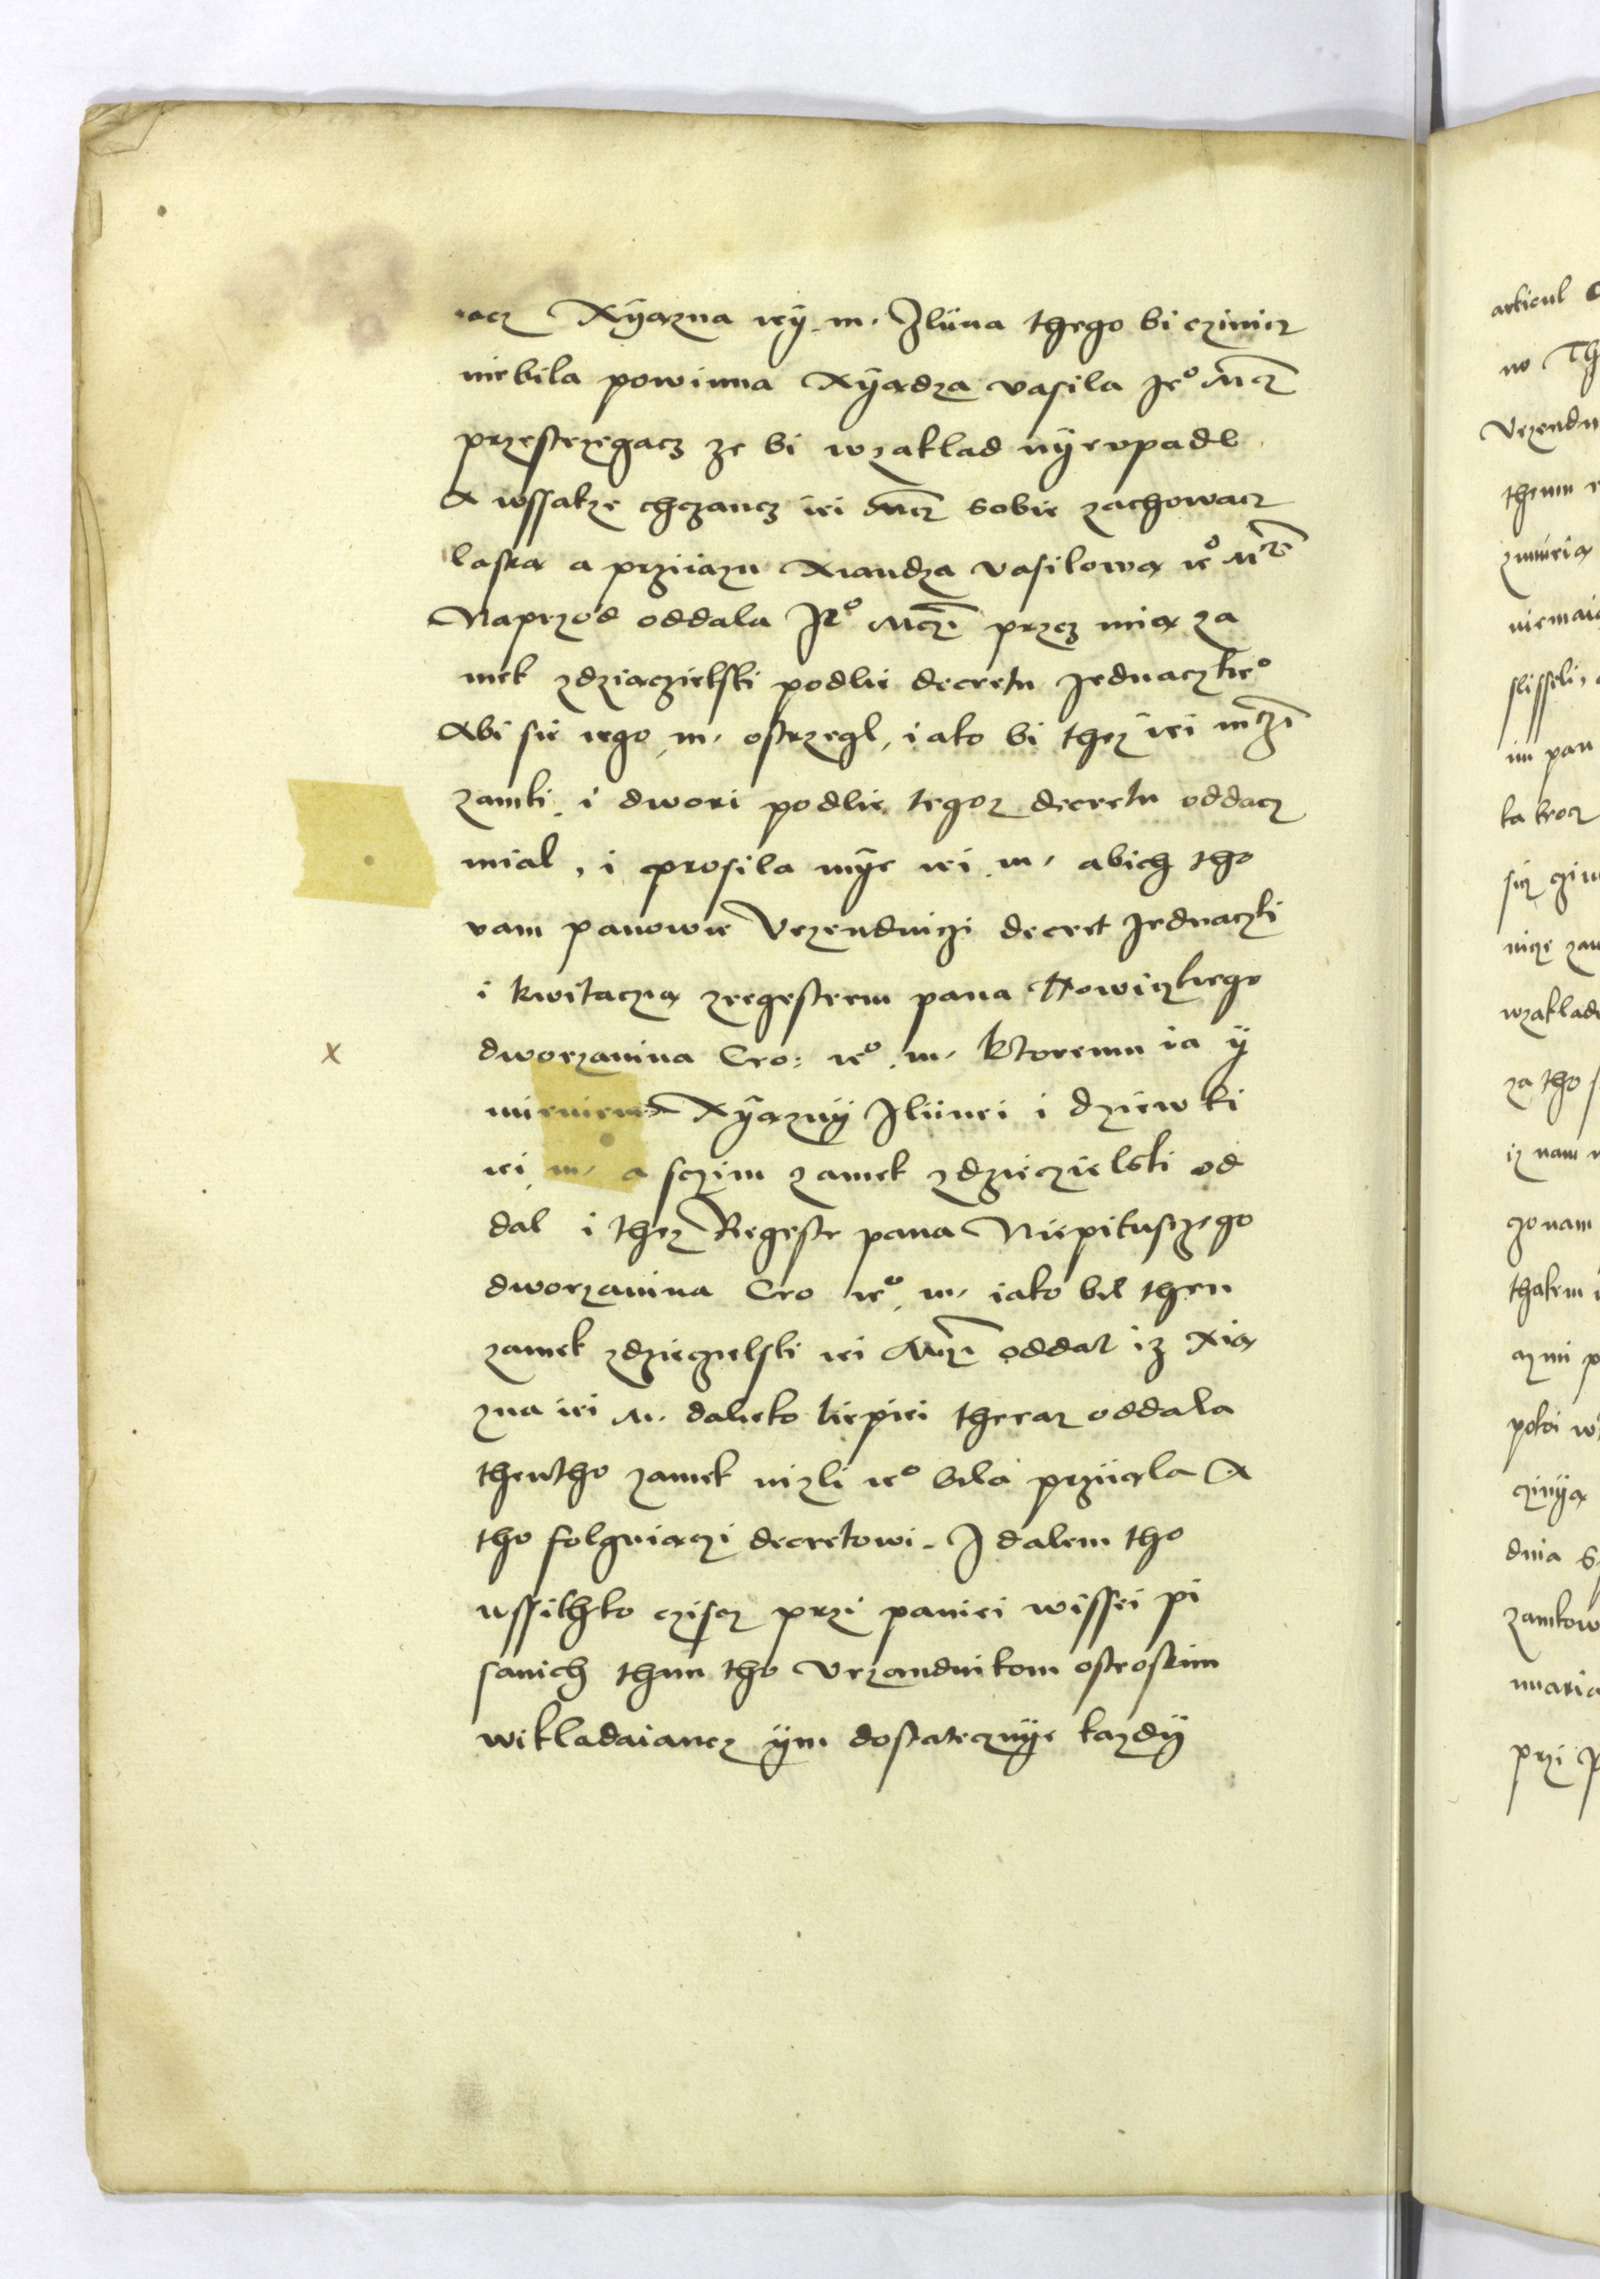 iacz Xÿązna ieÿ m. Ilüna thego bi czinicz
niebila powinna Xÿądza vasila Ie° Mcz
przestrzegacz ze bi wzaklad nÿevpadl
A wssakze chczancz iei Mcz sobie zachowacz
laską a prziiazn xiandza vasilową ie° Mcz
Naprzod oddala Ie° Mczi przez mią za
mek zdziączielski podlie decretu Iednaczkie°
Abi sie iego m. ostrzegl, iako bi thez iei mczi
zamki i dwori podlie tegoz decretu oddacz
mial, i prosila mÿe iei m. abich tho
vam panowie Vrzendniczi decret Iednaczki
i kwitaczią zregestrem pana
dworzanina Cro: ie° m. ktoremu ia ÿ
mieniem Xÿąznÿ Ilünei i dziewki
iei m. a sczim zamek zdzieczielski od
dal i thez Regestr pana Niepituszego
dworzanina Cro ie° m. iako bil then
zamek zdzieczielski iei Mczi oddal iz xią
zna iei M. daleko liepiei theraz oddala
thentho zamek nizli ie° bila prziiąla A
tho folguiączi decretowi. I dalem tho
wssithko czisz przi paniei wissei pi
sanich thim tho Vrzandnikom ostroskim
wikladaiancz ÿm dostatecznÿe kazdÿ
x
articul
no
Vrzendn
themu
zmüeią
niemaią
slisseli,
im pan
ka krocz
wzaklad
za tho
iz nam
zonam
thakem
pokoi
czinÿą
dnia
zamkow
przi